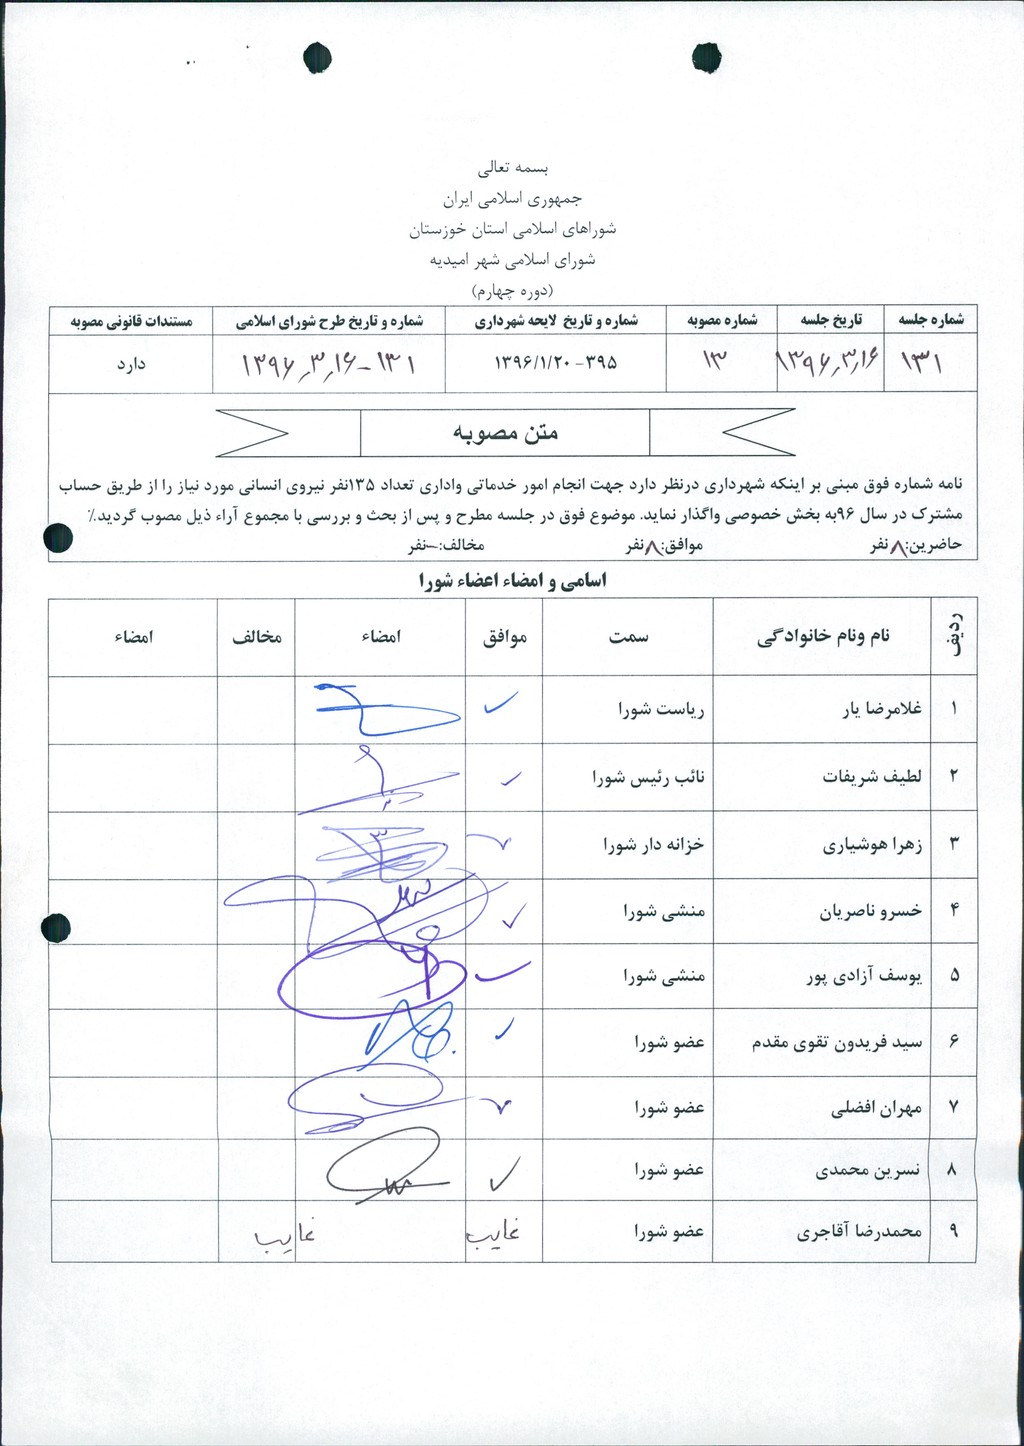 بسمه تعالی
جمهوری اسلامی ایران
شوراهای اسلامی استان خوزستان
شورای اسلامی شهر امیدیه
(دوره چهارم)
شماره جلسه تاریخ جلسه شماره مصوبه شماره و تاریخ لایحه شهرداری شماره و تاریخ طرح شورای اسلامی مستندات قانونی مصوبه
۱۳۱ ۱۳۹۶٫۳٫۱۶ ۱۳ ۱۳۹۶/۱/۲۰-۳۹۵ ۱۳۱-۱۳۹۶٫۳٫۱۶ دارد
متن مصوبه
نامه شماره فوق مبنی بر اینکه شهرداری درنظر دارد جهت انجام امور خدماتی واداری تعداد ۱۳۵نفر نیروی انسانی مورد نیاز را از طریق حساب
مشترک در سال ۹۶به بخش خصوصی واگذار نماید. موضوع فوق در جلسه مطرح و پس از بحث و بررسی با مجموع آراء ذیل مصوب گردید.٪
حاضرین:۸نفر موافق:۸نفر مخالف:-نفر
اسامی و امضاء اعضاء شورا
ردیف نام ونام خانوادگی سمت موافق امضاء مخالف امضاء
۱ غلامرضا یار ریاست شورا
۲ لطیف شریفات نائب رئیس شورا
۳ زهرا هوشیاری خزانه دار شورا
۴ خسرو ناصریان منشی شورا
۵ یوسف آزادی پور منشی شورا
۶ سید فریدون تقوی مقدم عضو شورا
۷ مهران افضلی عضو شورا
۸ نسرین محمدی عضو شورا
۹ محمدرضا آقاجری عضو شورا غایب غایب